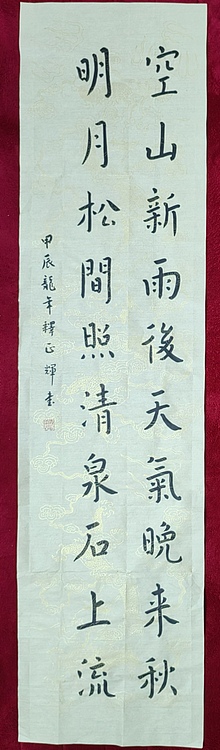 空山新雨後天氣晚来秋
明月松間照清泉石上流
甲辰龍年釋正輝書